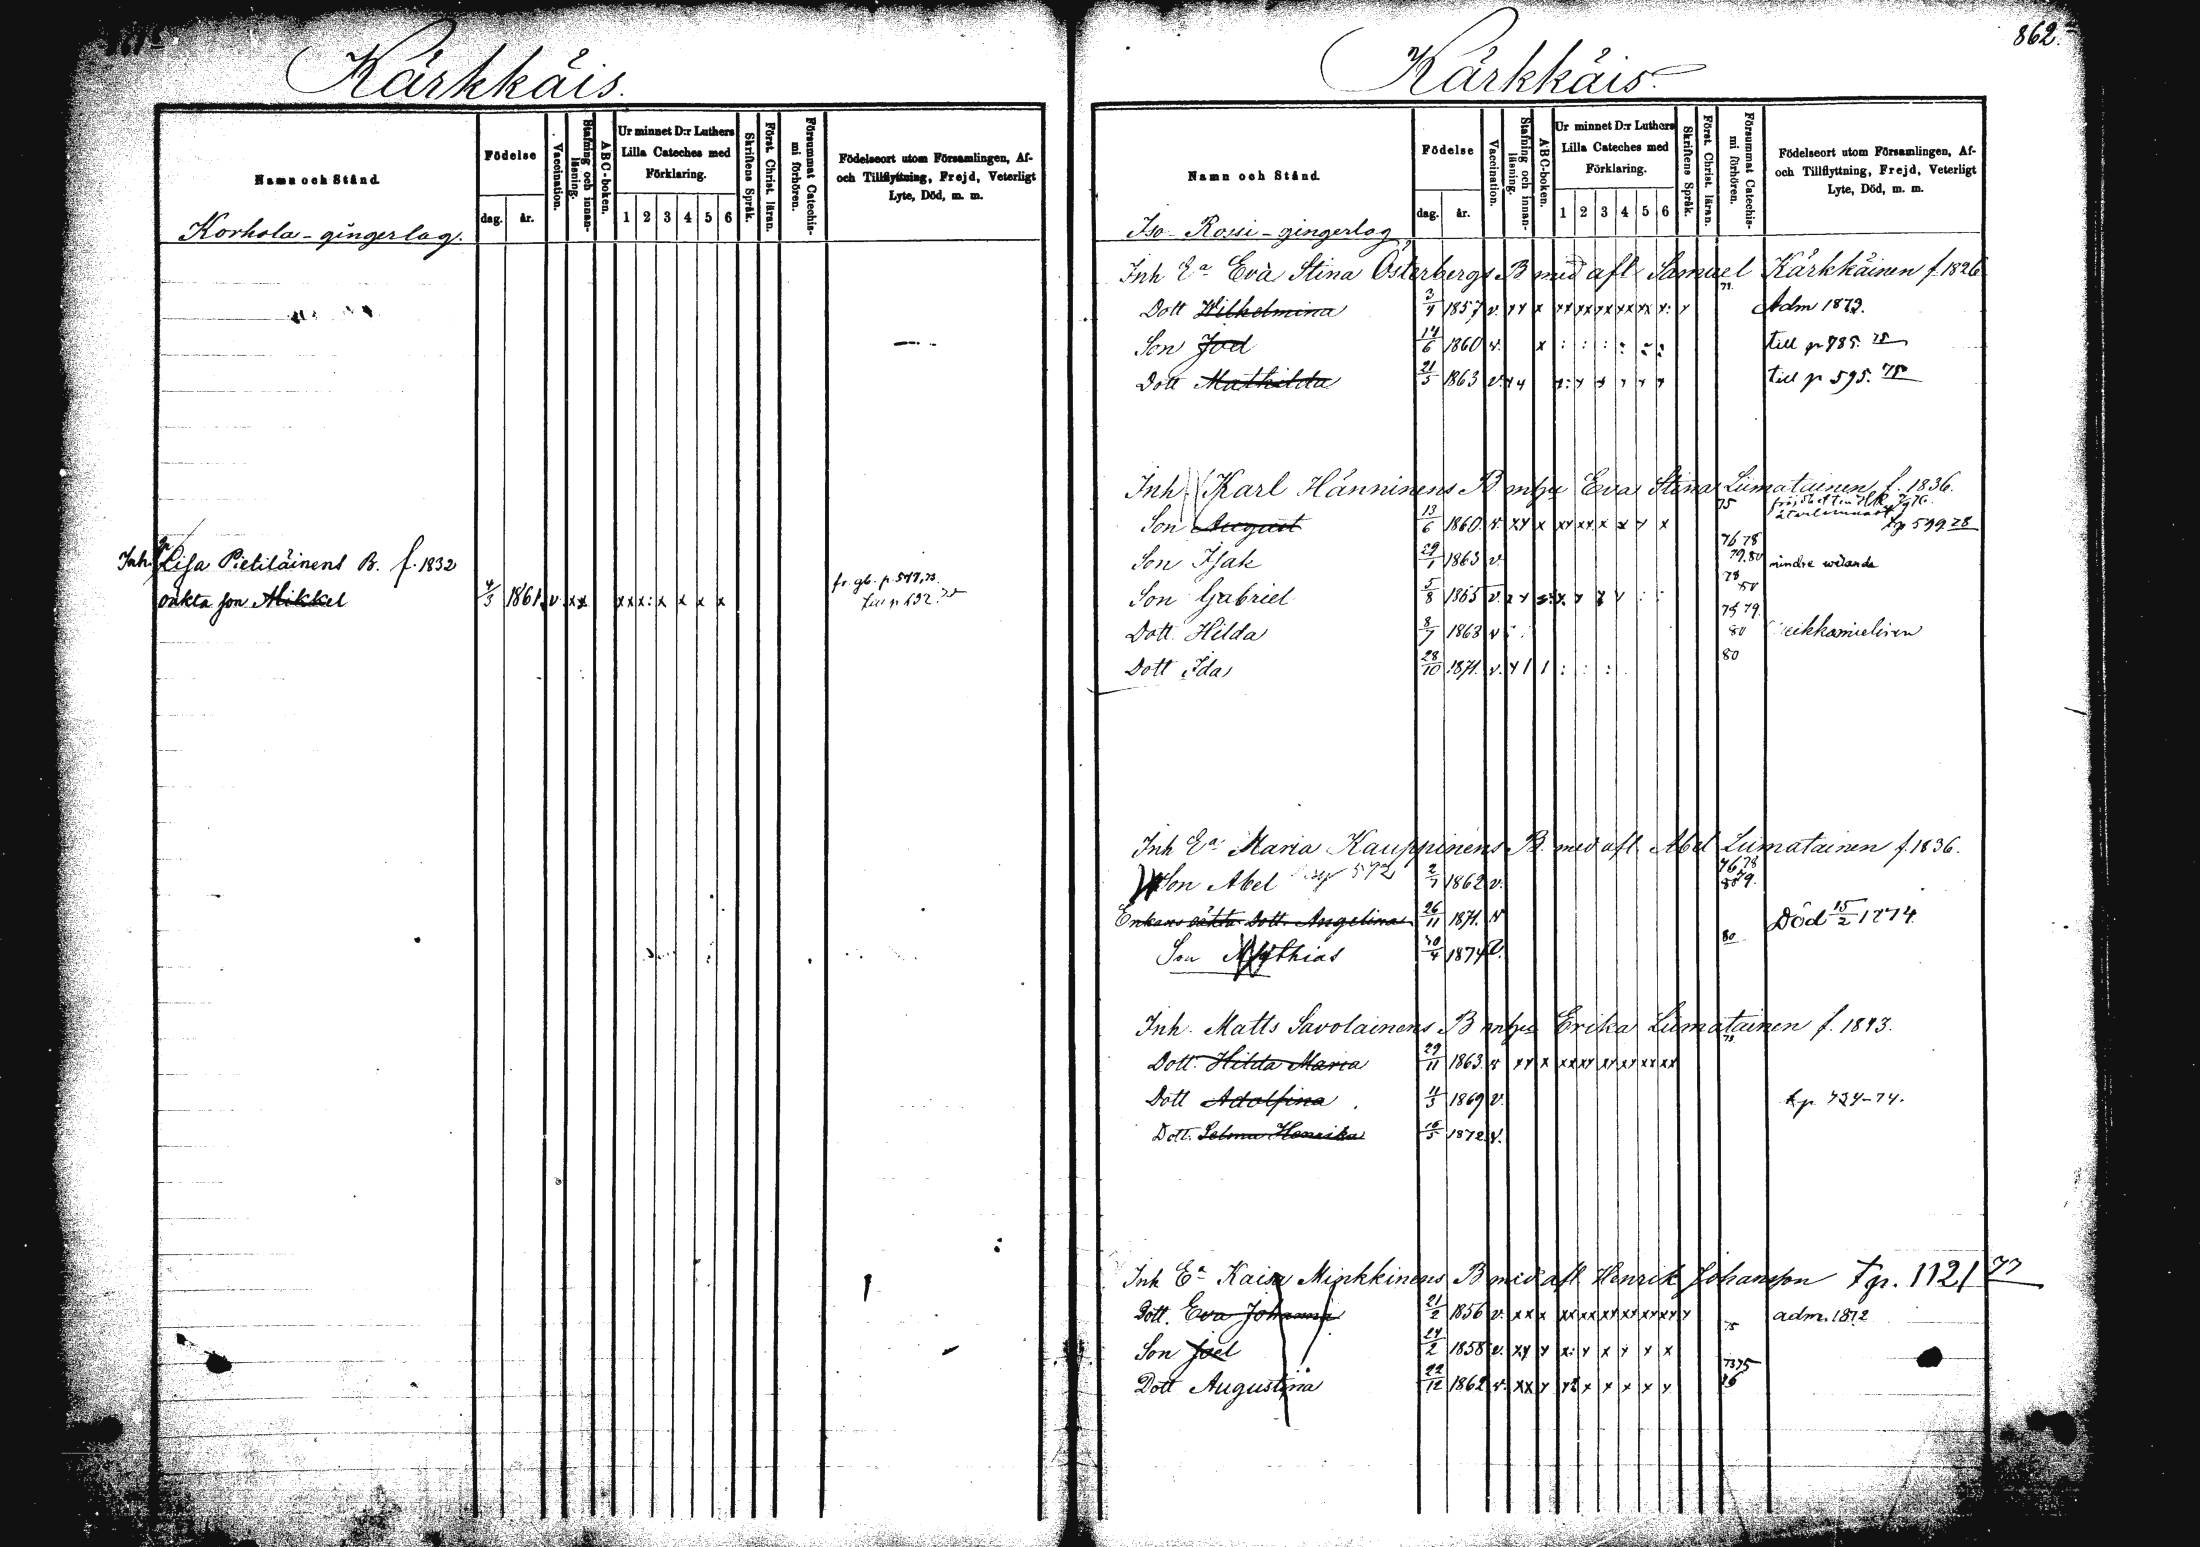 Kärkkäis.
Namn och Stånd.
Födelse
dag.
år.
Vaccination.
Stafning och innanläsning.
ABC-boken.
Ur minnet D:r Luthers Lilla Cateches med Förklaring.
1 2 3 4 5 6
Skriftens Språk.
Först. Christ. läran.
Försummat Catechismi förhören.
Födelseort utom Församlingen, Af- och Tillflyttning, Frejd, Veterligt Lyte, Död, m. m.
Korhola-gingerlag.
Inh. Lisa Pietiläinens B. f. 1832 fr. gb. p. 547,73.
oäkta son Mikkel 4/3 1861 v x x x x x : x x x x
862.
Kärkkäis.
Namn och Stånd.
Födelse
dag.
år.
Vaccination.
Stafning och innanläsning.
ABC-boken.
Ur minnet D:r Luthers Lilla Cateches med Förklaring.
1 2 3 4 5 6
Skriftens Språk.
Först. Christ. läran.
Försummat Catechismi förhören.
Födelseort utom Församlingen, Af- och Tillflyttning, Frejd, Veterligt Lyte, Död, m. m.
Iso-Rossi-gingerlag
Inh Ea Eva Stina Österbergs B med afl Samuel Kärkkäinen f 1826
Dott Wilhelmina 3/4 1857 v. Adm 1872.
Son Joel 14/6 1860 v. till p 785. 75
Dott Mathilda 21/5 1863 v. till p 595. 75
Inh Karl Hänninens B. m hu Eva Stina Liimatainen f. 1836.
Son August 13/6 1860 v 75 t p 599 78
Son Isak 29/1 1863 v. 76 78 79.80 mindre vetande
Son Gabriel 5/8 1865 v. 78 80
Dott. Hilda 8/7 1863 v 75 79. 80
Dott Ida 28/10 1871. v. 80
Inh Ea Maria Kauppinens B. med afl. Abel Liimatainen f. 1836.
Son Abel 572 2/7 1862 v. 76 78 80 79.
Enkans oäkta Dott. Angelina 26/11 1871. v Död 15/2 1874.
Son Mathias 30/4 1874 v. 80
Inh. Matts Savolainens B m hu Erika Liimatainen f. 1843.
Dott. Hilda Maria 29/11 1863 v
Dott Adolfina 4/3 1869 v. t p. 734-74.
Dott. Selma Henrika 16/5 1872 v.
Inh Ea Kaisa Minkkinens B med afl Henrik Johansson t p. 1121 77
Dott. Eva Johanna 21/2 1856 v. adm. 1872
Son Joel 24/2 1858 v. 75
Dott Augustina 22/12 1862 v. 73 75 76